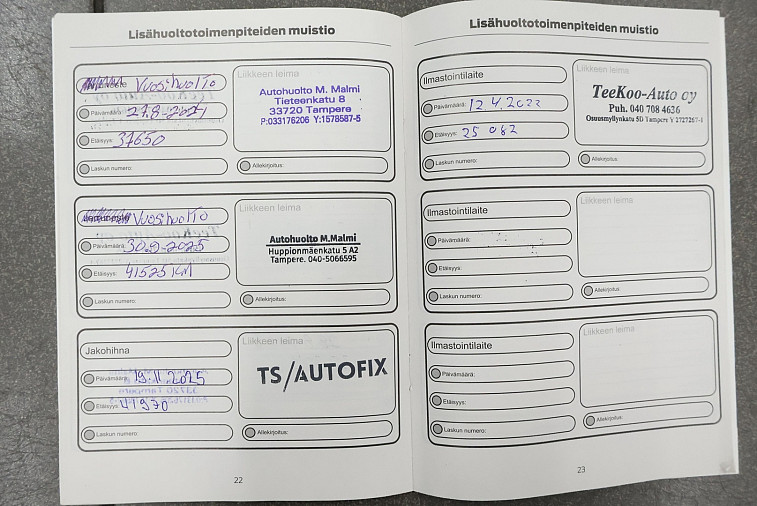 Lisähuoltotoimenpiteiden muistio
Vuosihuolto
Päivämäärä: 27.8-2024
Etäisyys: 37650
Laskun numero:
Liikkeen leima
Autohuolto M. Malmi
Tieteenkatu 8
33720 Tampere
P:033176206 Y:1578587-5
Allekirjoitus:
Vuosihuolto
Päivämäärä: 30.9-2025
Etäisyys: 41525 KM
Laskun numero:
Liikkeen leima
Autohuolto M.Malmi
Huppionmäenkatu 5 A2
Tampere. 040-5066595
Allekirjoitus:
Jakohihna
Päivämäärä: 19.11.2025
Etäisyys: 41970
Laskun numero:
Liikkeen leima
TS/AUTOFIX
Allekirjoitus:
22
Lisähuoltotoimenpiteiden muistio
Ilmastointilaite
Päivämäärä: 12.4.2022
Etäisyys: 25 082
Laskun numero:
Liikkeen leima
TeeKoo-Auto oy
Puh. 040 708 4636
Osuusmyllynkatu 5D Tampere Y 2727267-1
Allekirjoitus:
Ilmastointilaite
Päivämäärä:
Etäisyys:
Laskun numero:
Liikkeen leima
Allekirjoitus:
Ilmastointilaite
Päivämäärä:
Etäisyys:
Laskun numero:
Liikkeen leima
Allekirjoitus:
23